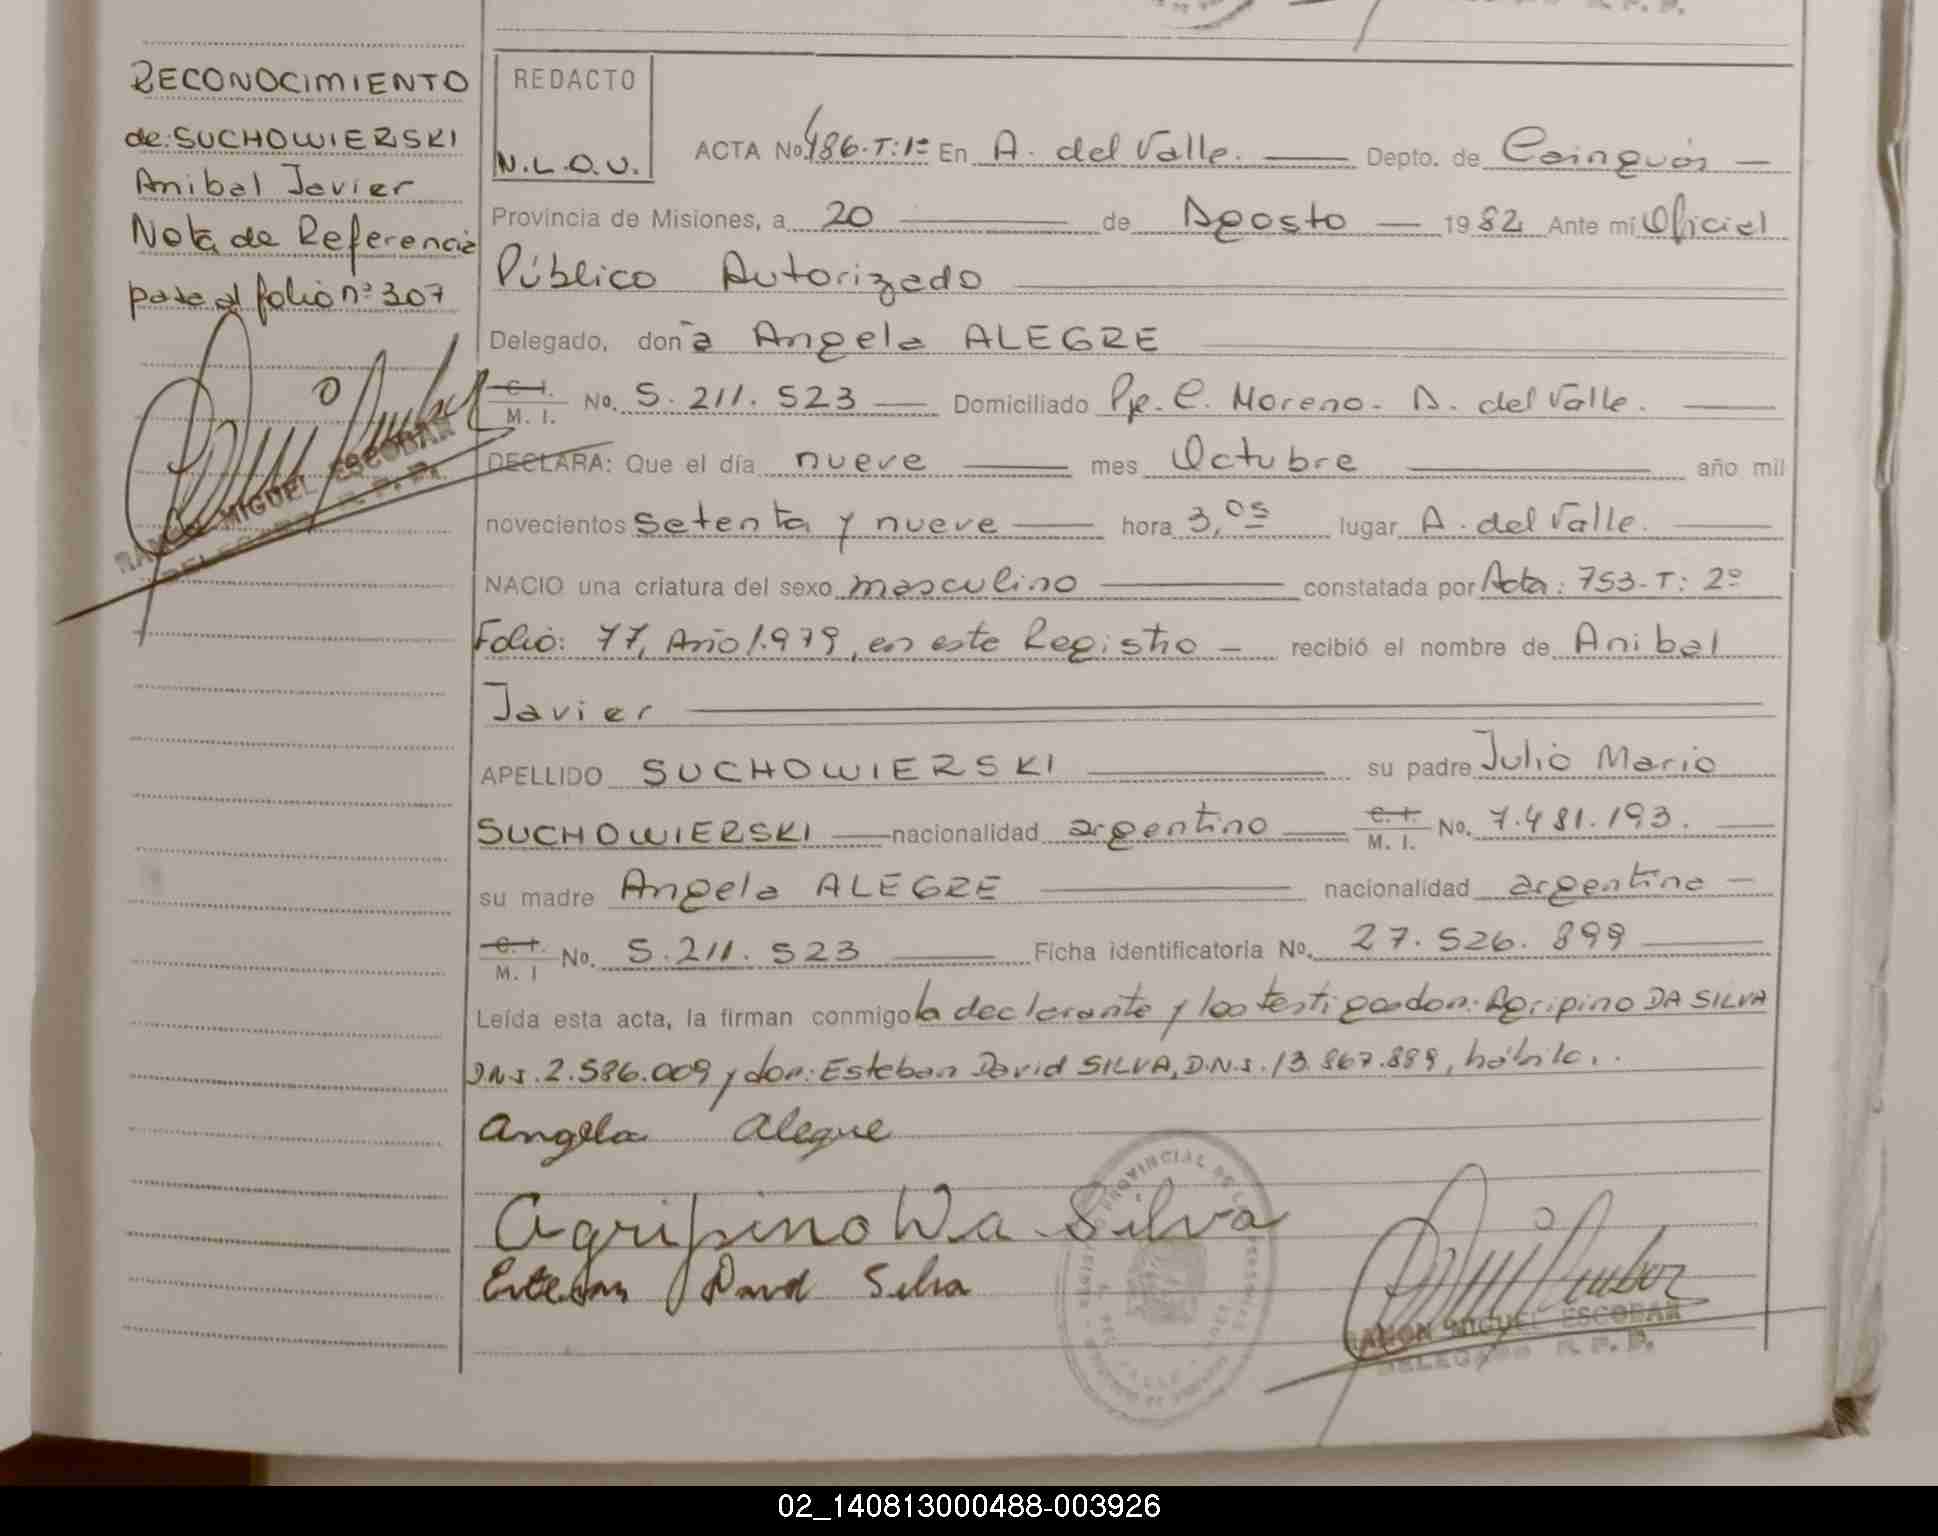 RECONOCIMIENTO
de: SUCHOWIERSKI
Anibal Javier
Nota de Referencia
pasa al folio nº 307
RAMON MIGUEL ESCOBAR
DELEGADO R. P. P.
REDACTO
N.L.O.U.
ACTA No 486-T:1º En A. del Valle. Depto. de Cainguás
Provincia de Misiones, a 20 de Agosto 1982 Ante mi Oficial
Público Autorizado
Delegado, doña Angela ALEGRE
C. I. M. I. No. 5.211.523 Domiciliado Pje. C. Moreno - A. del Valle.
DECLARA: Que el día nueve mes Octubre año mil
novecientos setenta y nueve hora 3,05 lugar A. del Valle.
NACIO una criatura del sexo masculino constatada por Acta: 753-T: 2º
Folio: 77, Año 1.979, en este Registro recibió el nombre de Anibal
Javier
APELLIDO SUCHOWIERSKI su padre Julio Mario
SUCHOWIERSKI nacionalidad argentino C. I. M. I. No. 7.481.193.
su madre Angela ALEGRE nacionalidad argentina
C. I. M. I No. 5.211.523 Ficha identificatoria No. 27.526.899
Leída esta acta, la firman conmigo la declarante y los testigos don: Agripino DA SILVA
D.N.I. 2.586.009 y don: Esteban David SILVA, D.N.I. 13.867.889, hábile.
Angela Alegre
Agripino Da Silva
Esteban David Silva
RAMON MIGUEL ESCOBAR
DELEGADO R. P. P.
02_140813000488-003926